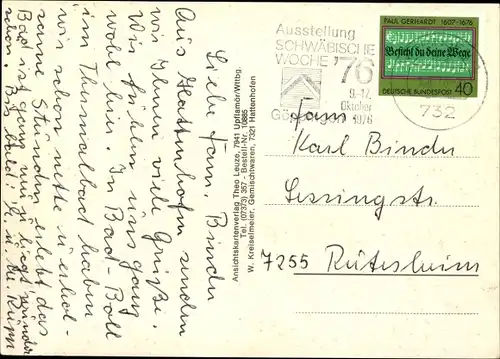 Liebe Fam. Binder
Aus Hattenhofen senden
wir Ihnen viele Grüße.
Wir fühlen uns ganz
wohl hier. In Bad-Boll
im Thermalbad haben
wir schon nette u. erhol-
same Stunden erlebt, das
Bad ist ganz neu u. liegt wunder
schön. Bis bald! E. u. W. Rupp
Ansichtskartenverlag Theo Leuze, 7941 Upflamör/Wittbg.
Tel. (07373) 357 - Bestell-Nr. 10885
W. Kreiselmeier, Gemischtwaren, 7321 Hattenhofen
Ausstellung
SCHWÄBISCHE
WOCHE '76
9.-17.
Oktober
1976
732
PAUL GERHARDT 1607-1676
Befiehl du deine Wege
DEUTSCHE BUNDESPOST 40
Fam.
Karl Binder
Lessingstr.
7255 Rutesheim